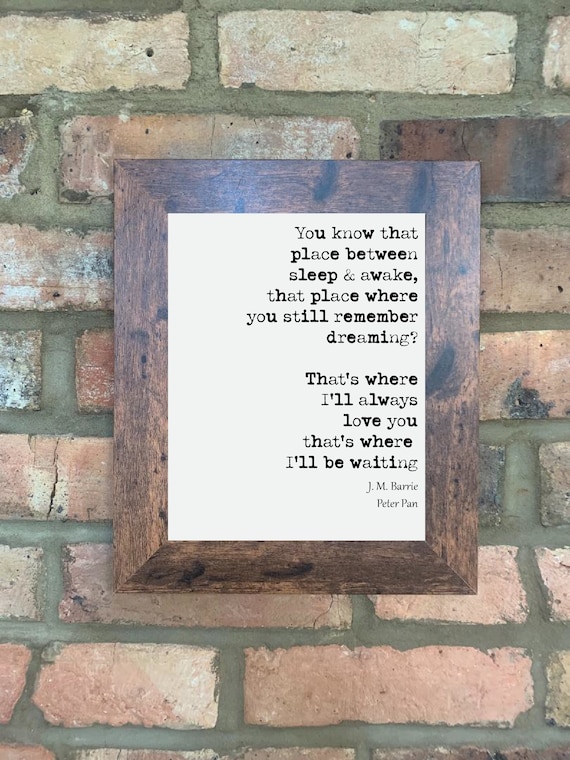 You know that
place between
sleep & awake,
that place where
you still remember
dreaming?
That's where
I'll always
love you
that's where
I'll be waiting
J. M. Barrie
Peter Pan